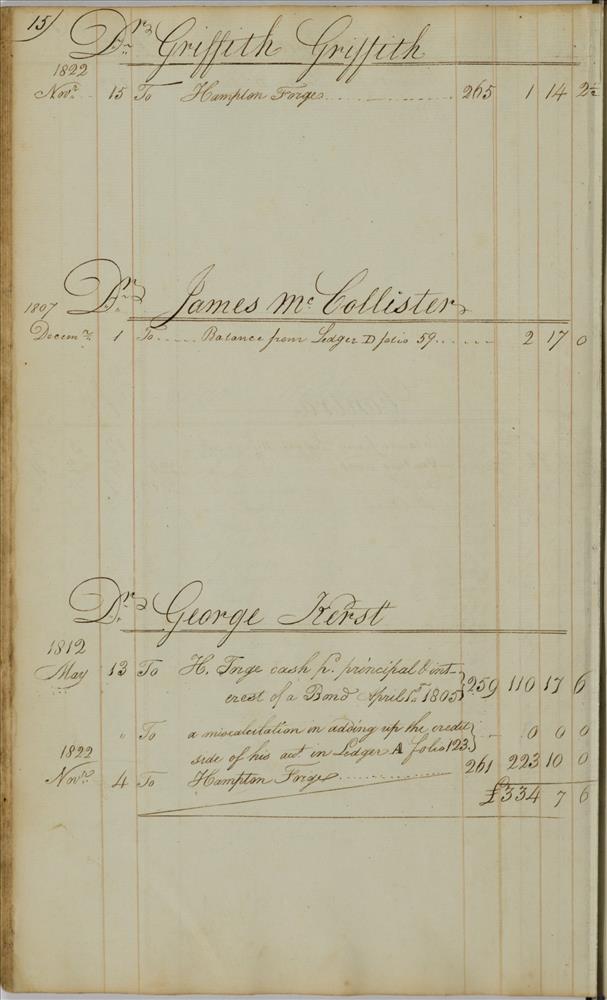 15
Dr. Griffith Griffith
1822
Novr. 15 To Hampton Forge 265 1 14 2½
Dr. James Mc Collister
1807
Decemr. 1 To Balance from Ledger D folio 59 2 17 0
Dr. George Kerst
1812
May 13 To H. Inge cash pr. principal & int-
erest of a Bond April 1st 1805 259 110 17 6
" To a miscalculation in adding up the credit
side of his act in Ledger A folio 123 0 0 0
1822
Novr. 4 To Hampton Forge 261 223 10 0
£334 7 6